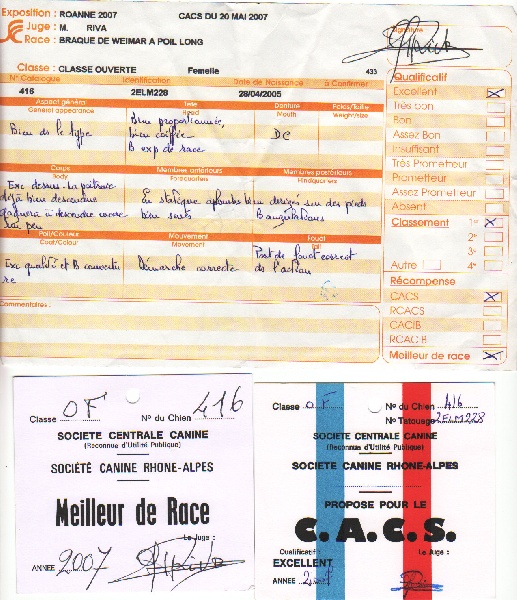 Exposition : ROANNE 2007 CACS DU 20 MAI 2007
Juge : M. RIVA
Race : BRAQUE DE WEIMAR A POIL LONG
Signature
Classe : CLASSE OUVERTE Femelle 433
N° Catalogue Identification Date de Naissance à Confirmer
416 2ELM228 28/04/2005
Aspect général Tête Denture Folas/Taille
General appearance Head Mouth Weight/size
Bien ds le type
Bien proportionnée,
bien coiffée
B exp de race
DC
Corps Membres antérieurs Membres postérieurs
Body Forequarters Hindquarters
Exc dessus. La poitrine
déjà bien descendue
gagnera à descendre encore
un peu
En statique aplombs bien dirigés sur des pieds
bien serrés
B angulations
Poil/Couleur Mouvement Fouet
Coat/Colour Movement Tail
Exc qualité et B couverture
Démarche correcte
Port de fouet correct
ds l'action
Commentaires :
Qualificatif
Excellent X
Très bon
Bon
Assez Bon
Insuffisant
Très Prometteur
Prometteur
Assez Prometteur
Absent
Classement 1e X
2e
3e
Autre 4e
Récompense
CACS X
RCACS
CACIB
RCACIB
Meilleur de race X
Classe OF N° du Chien 416
SOCIETE CENTRALE CANINE
(Reconnue d'Utilité Publique)
SOCIÉTÉ CANINE RHONE-ALPES
Meilleur de Race
Le Juge :
ANNEE 2007
Classe OF N° du Chien 416
N° Tatouage 2ELM228
SOCIETE CENTRALE CANINE
(Reconnue d'Utilité Publique)
SOCIETE CANINE RHONE-ALPES
PROPOSE POUR LE
C.A.C.S.
Qualificatif : Le Juge :
EXCELLENT
ANNEE 2007